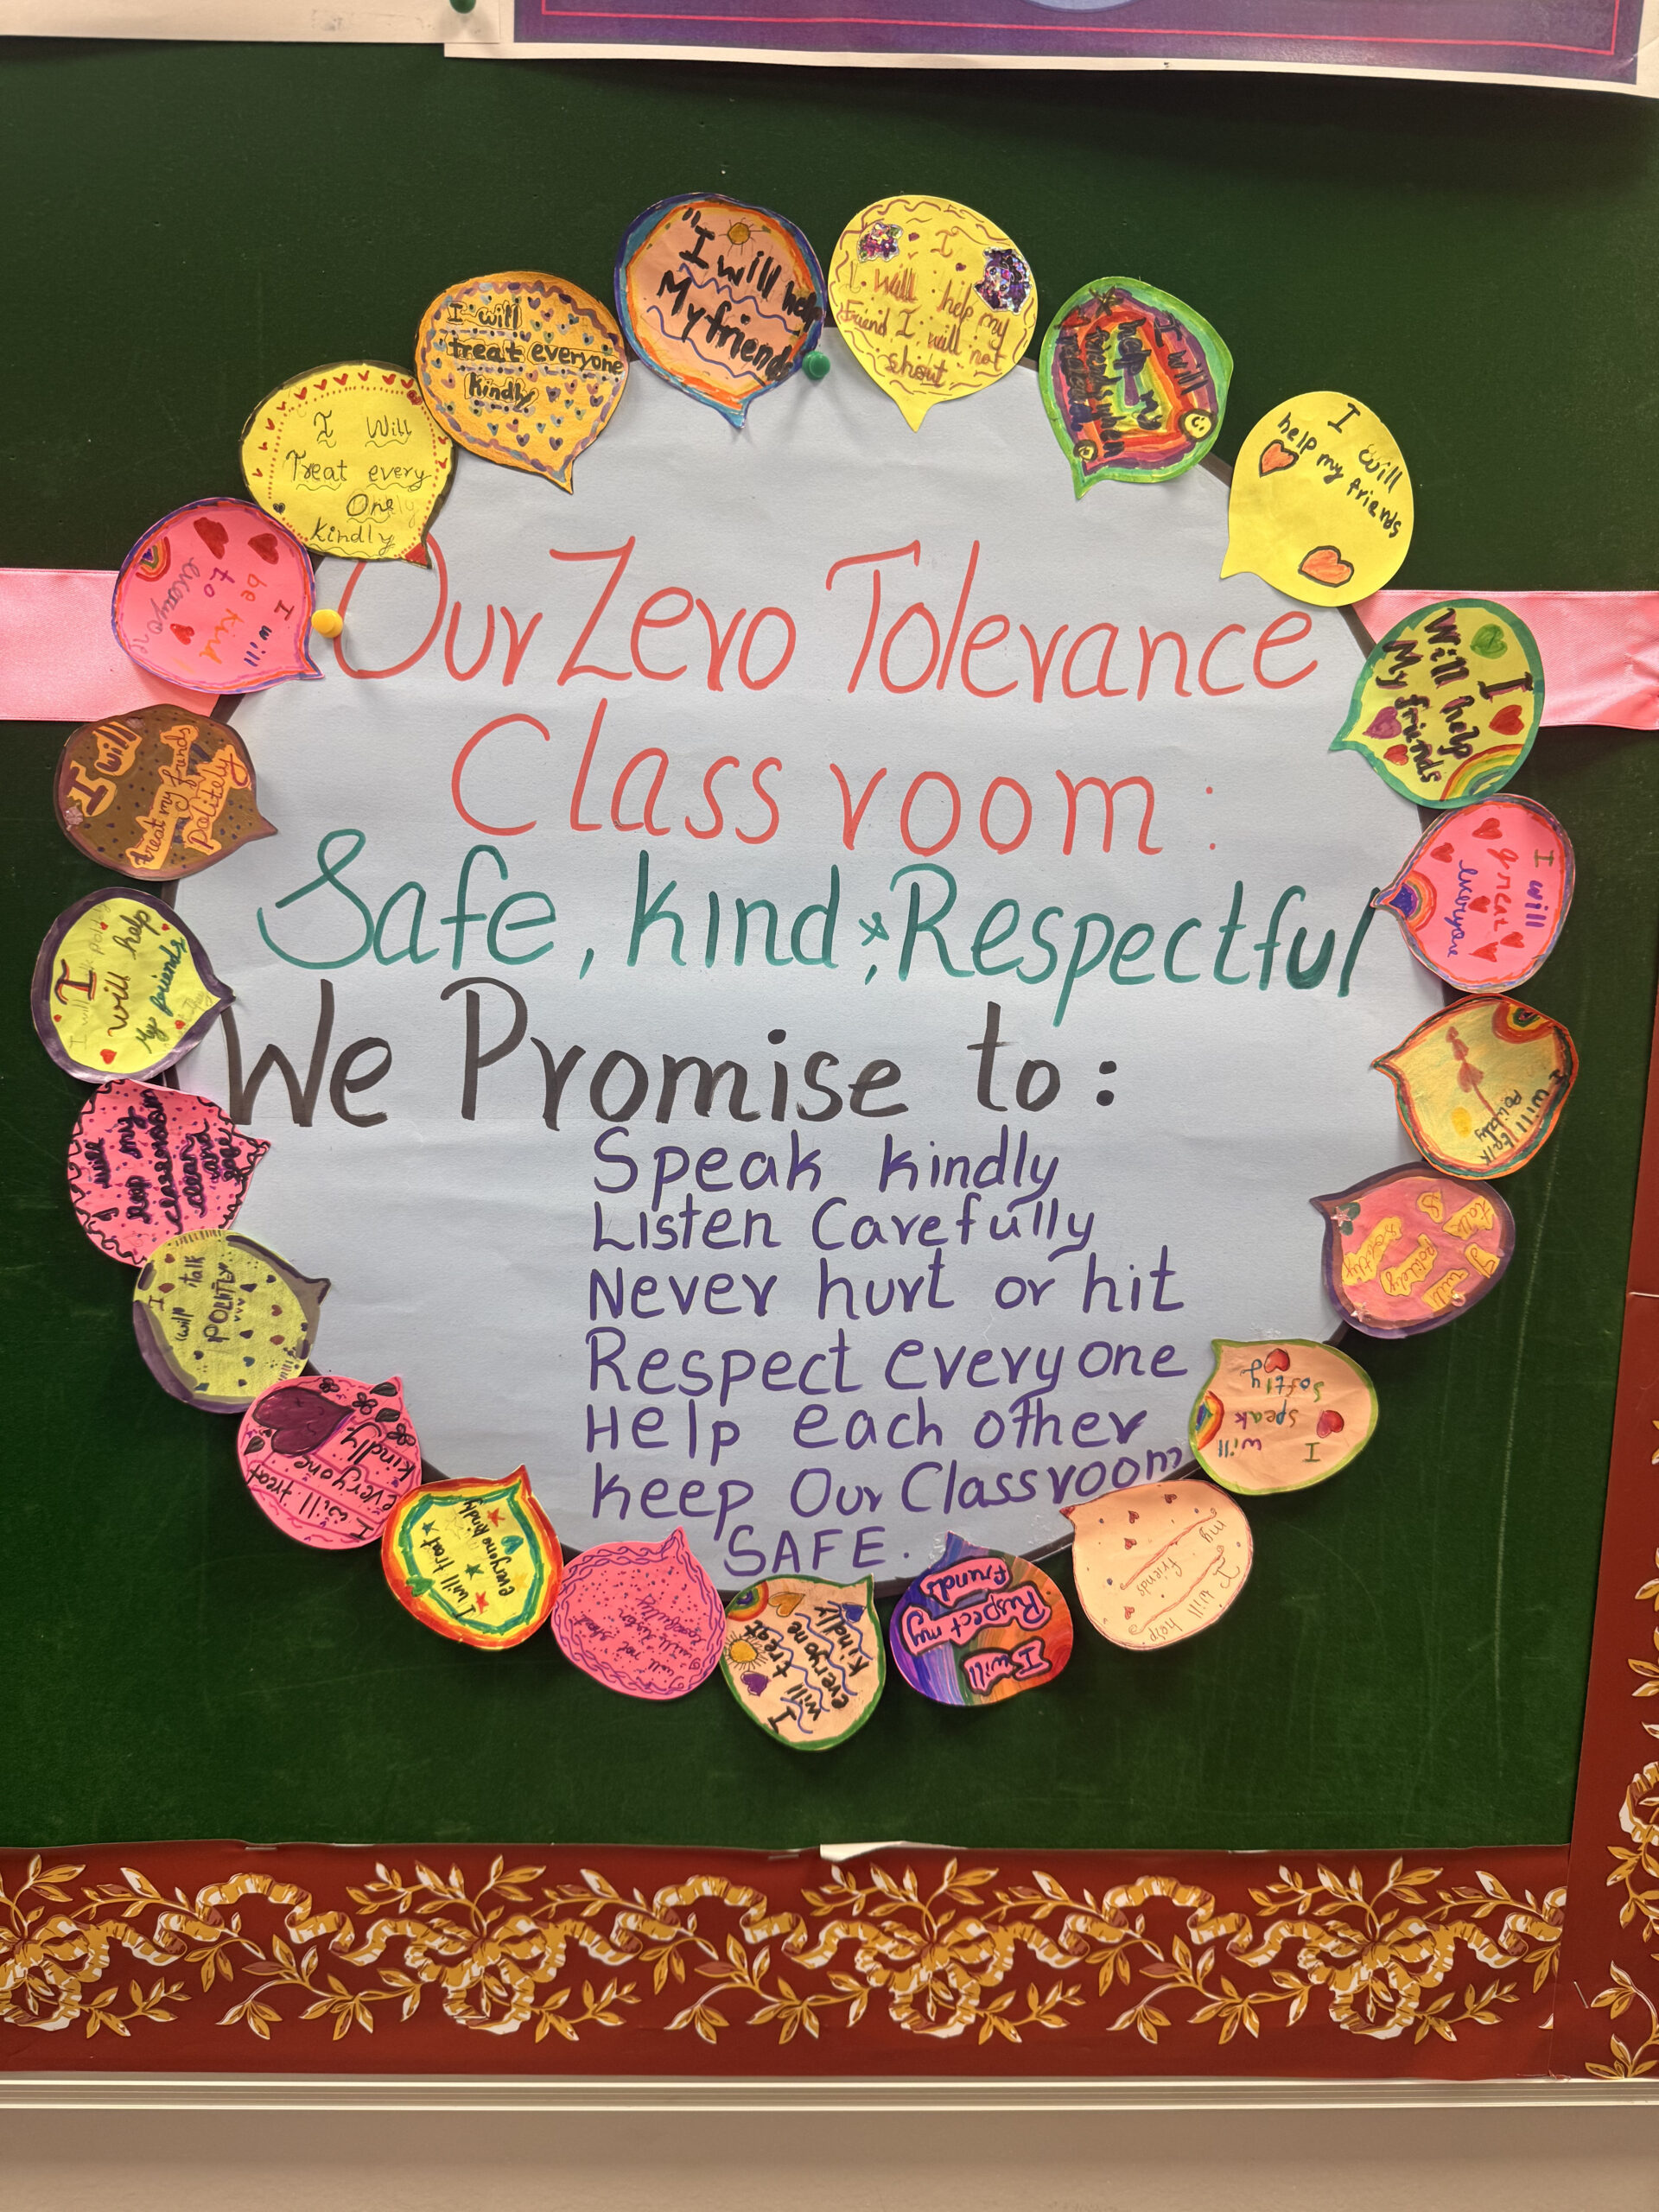 Our Zero Tolerance
Classroom:
Safe, kind, Respectful
We Promise to:
Speak kindly
Listen Carefully
Never hurt or hit
Respect everyone
Help each other
keep Our Classroom
SAFE.
"I will help
My friends
I
I will help my
friend I will not
shout
I will
help my
friends when
I will
help my friends
I
Will help
My friends
I will
great
everyone
I will talk
Politly
I will
talk
politely
softly
I
will
speak
softly
I will help
my friends
I will
Respect my
friends
I
will treat
everyone
kindly
I will not shout
I will listen
I will treat
everyone kindly
I will treat
everyone
kindly
I
will talk
POLITLY
I will
keep my
classroom
clean
and
safe
I
will help
My friends
I will
treat my friends
Politely
I will
be kind
to
everyone
I Will
Treat every
One
kindly
I will
treat everyone
kindly